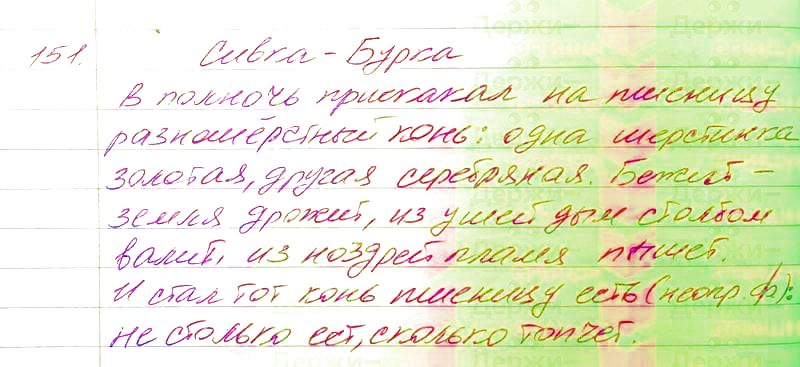 151. Сивка-Бурка
В полночь прискакал на пшеницу
разношёрстный конь: одна шерстинка
золотая, другая серебряная. Бежит –
земля дрожит, из ушей дым столбом
валит, из ноздрей пламя пышет.
И стал тот конь пшеницу есть (неопр. ф.):
не столько ест, сколько топчет.